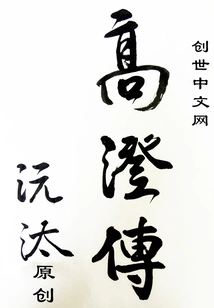 创世中文网
高澄傳
沅汰原创